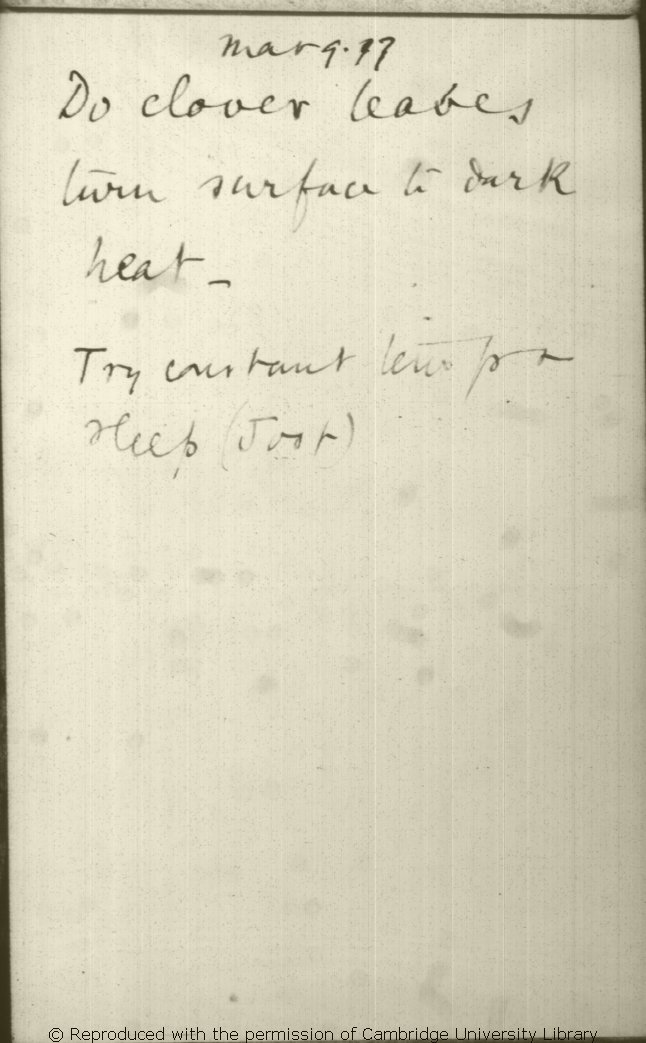 Mar 9. 97
Do clover leaves
turn surface to dark
heat –
Try constant temp &
sleep (Jost)
© Reproduced with the permission of Cambridge University Library